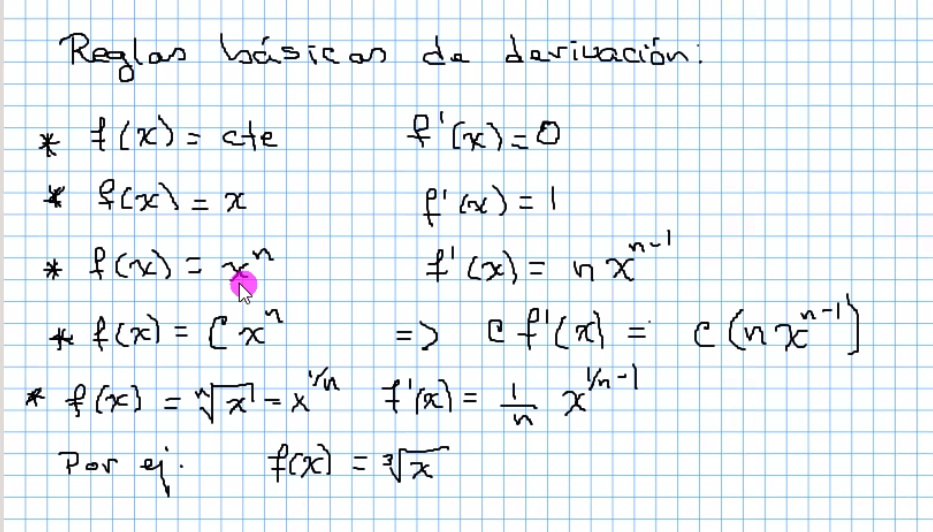 Reglas básicas de derivación:
* f(x) = cte f'(x) = 0
* f(x) = x f'(x) = 1
* f(x) = xⁿ f'(x) = n xⁿ⁻¹
* f(x) = C xⁿ => c f'(x) = c (n xⁿ⁻¹)
* f(x) = ⁿ√x = x^(1/n) f'(x) = 1/n x^(1/n - 1)
Por ej. f(x) = ³√x